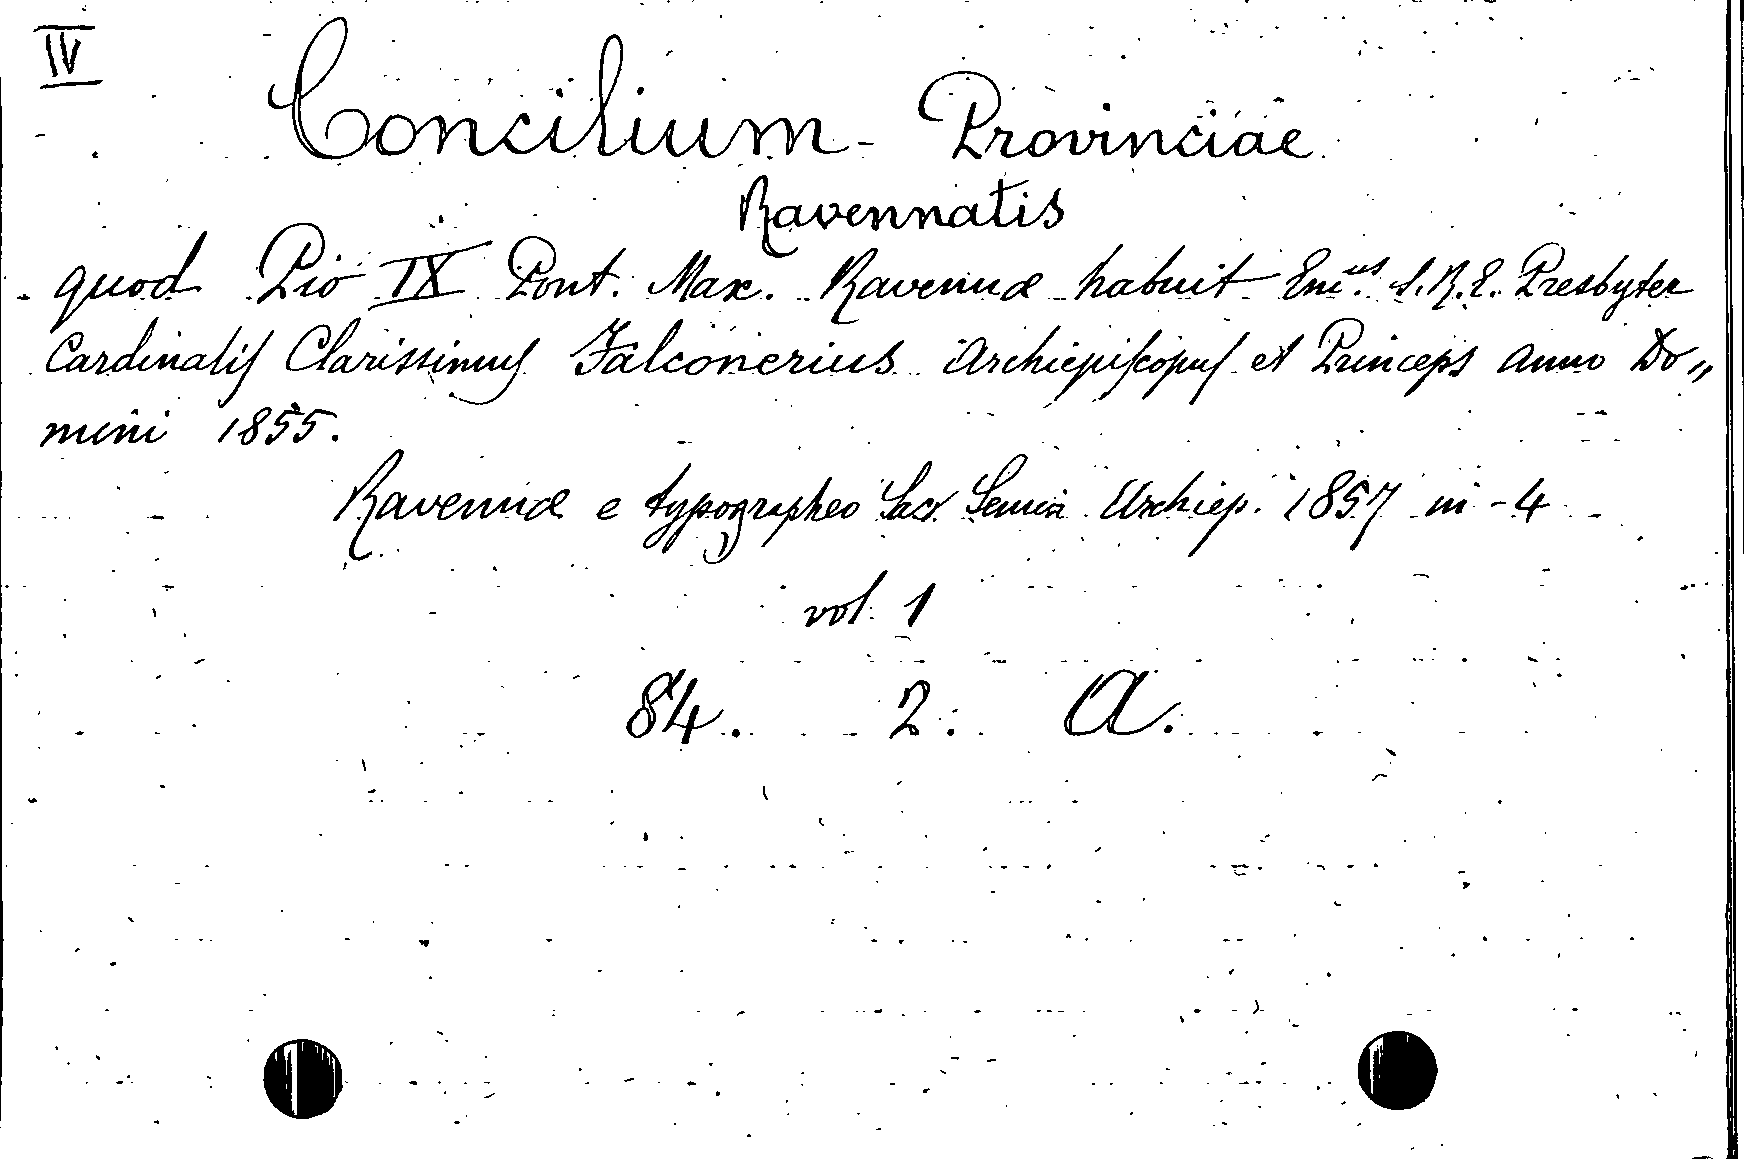 IV
Concilium Provinciae
Ravennatis
quod Pio IX Pont. Max. Ravennæ habuit Em.us S. R. E. Presbyter
Cardinalis Clarissimus Falconerius Archiepiscopus et Princeps anno Do„
mini 1855.
Ravennæ e typographeo Sac. Archiep. 1857 in-4
vol. 1
84. 2. A.